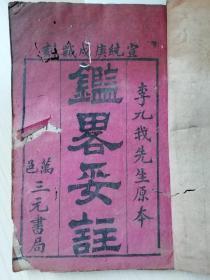 宣統庚戌歲
李九我先生原本
鑑畧妥註
萬邑
三元書局